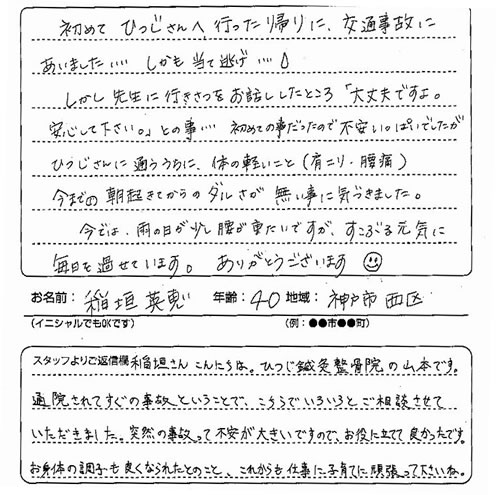 初めて ひつじさんへ 行った帰りに、交通事故に
あいました…… しかも当て逃げ…
しかし先生に行きさつをお話ししたところ「大丈夫ですよ。
安心して下さい。」との事… 初めての事だったので不安いっぱいでしたが
ひつじさんに通ううちに、体の軽いこと(肩こり・腰痛)
今までの朝起きてからのダルさが無い事に気づきました。
今では、雨の日が少し腰が重たいですが、すこぶる元気に
毎日を過せています。 ありがとうございます
お名前: 稲垣 英恵 年齢: 40 地域: 神戸市西区
(イニシャルでもOKです) (例:●●市●●町)
スタッフよりご返信欄 稲垣さん こんにちは。ひつじ鍼灸整骨院の山本です。
通院されてすぐの事故ということで、こちらでいろいろとご相談させて
いただきました。突然の事故って不安が大きいですので、お役に立てて良かったです。
お身体の調子も良くなられたとのこと、これからも仕事に子育てに頑張って下さいね。